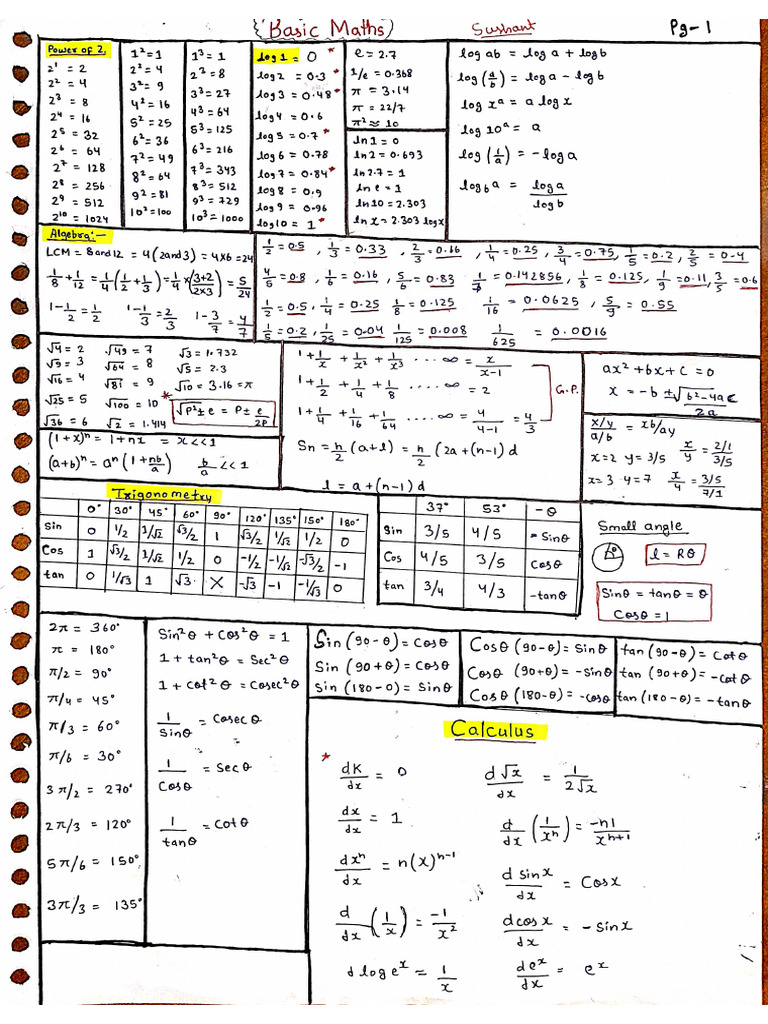 {Basic Maths} Sushant Pg-1
Power of 2,
2¹ = 2
2² = 4
2³ = 8
2⁴ = 16
2⁵ = 32
2⁶ = 64
2⁷ = 128
2⁸ = 256
2⁹ = 512
2¹⁰ = 1024
1² = 1
2² = 4
3² = 9
4² = 16
5² = 25
6² = 36
7² = 49
8² = 64
9² = 81
10² = 100
1³ = 1
2³ = 8
3³ = 27
4³ = 64
5³ = 125
6³ = 216
7³ = 343
8³ = 512
9³ = 729
10³ = 1000
log 1 = 0 *
log 2 = 0.3 *
log 3 = 0.48 *
log 4 = 0.6
log 5 = 0.7 *
log 6 = 0.78
log 7 = 0.84 *
log 8 = 0.9
log 9 = 0.96
log 10 = 1 *
e = 2.7
1/e = 0.368
π = 3.14
π = 22/7
π² ≈ 10
ln 1 = 0
ln 2 = 0.693
ln 2.7 = 1
ln e = 1
ln 10 = 2.303
ln x = 2.303 log x
log ab = log a + log b
log (a/b) = log a - log b
log xᵃ = a log x
log 10ᵃ = a
log (1/a) = - log a
log_b a = log a / log b
Algebra:-
LCM = 8 and 12 = 4 (2 and 3) = 4x6 = 24
1/8 + 1/12 = 1/4 (1/2 + 1/3) = 1/4 x (3+2 / 2x3) = 5/24
1 - 1/2 = 1/2 1 - 1/3 = 2/3 1 - 3/7 = 4/7
1/2 = 0.5, 1/3 = 0.33, 2/3 = 0.16, 1/4 = 0.25, 3/4 = 0.75, 1/5 = 0.2, 2/5 = 0.4
4/5 = 0.8, 1/6 = 0.16, 5/6 = 0.83 1/7 = 0.142856, 1/8 = 0.125, 1/9 = 0.11, 3/5 = 0.6
1/2 = 0.5, 1/4 = 0.25 1/8 = 0.125 1/16 = 0.0625, 5/9 = 0.55
1/5 = 0.2, 1/25 = 0.04 1/125 = 0.008 1/625 = 0.0016
√4 = 2 √49 = 7 √3 = 1.732
√9 = 3 √64 = 8 √5 = 2.3
√16 = 4 √81 = 9 √10 = 3.16 = π
√25 = 5 √100 = 10 * √P² ± e = P ± e/2P
√36 = 6 √2 = 1.414
(1+x)ⁿ = 1 + nx = x << 1
(a+b)ⁿ = aⁿ (1 + nb/a) b/a << 1
1 + 1/x + 1/x² + 1/x³ .... ∞ = x/x-1
1 + 1/2 + 1/4 + 1/8 .... ∞ = 2
G.P.
1 + 1/4 + 1/16 + 1/64 .... ∞ = 4/4-1 = 4/3
Sn = n/2 (a+l) = n/2 (2a + (n-1) d
l = a + (n-1) d
ax² + bx + c = 0
x = -b ± √b²-4ac / 2a
x/y / a/b = xb/ay
x = 2 y = 3/5 x/y = 2/1 / 3/5
x = 3 y = 7 x/4 = 3/5 / 7/1
Trigonometry
0° 30° 45° 60° 90° 120° 135° 150° 180°
Sin 0 1/2 1/√2 √3/2 1 √3/2 1/√2 1/2 0
Cos 1 √3/2 1/√2 1/2 0 -1/2 -1/√2 -√3/2 -1
tan 0 1/√3 1 √3 X -√3 -1 -1/√3 0
37° 53° -θ
Sin 3/5 4/5 - Sinθ
Cos 4/5 3/5 Cosθ
tan 3/4 4/3 -tanθ
Small angle
l = Rθ
Sinθ = tanθ = θ
Cosθ = 1
2π = 360°
π = 180°
π/2 = 90°
π/4 = 45°
π/3 = 60°
π/6 = 30°
3π/2 = 270°
2π/3 = 120°
5π/6 = 150°
3π/3 = 135°
Sin²θ + Cos²θ = 1
1 + tan²θ = Sec²θ
1 + cot²θ = Cosec²θ
1/Sinθ = Cosec θ
1/Cosθ = Sec θ
1/tanθ = Cot θ
Sin (90-θ) = Cosθ
Sin (90+θ) = Cosθ
Sin (180-0) = Sinθ
Cosθ (90-θ) = Sinθ
Cosθ (90+θ) = -Sinθ
Cosθ (180-θ) = -cosθ
tan (90-θ) = Cotθ
tan (90+θ) = -cotθ
tan (180-θ) = -tanθ
Calculus
*
dK/dx = 0
dx/dx = 1
dxⁿ/dx = n(x)ⁿ⁻¹
d/dx (1/x) = -1/x²
d log eˣ = 1/x
d√x/dx = 1/2√x
d/dx (1/xⁿ) = -n1/xⁿ⁺¹
d sinx/dx = Cosx
d cosx/dx = - Sinx
d eˣ/dx = eˣ